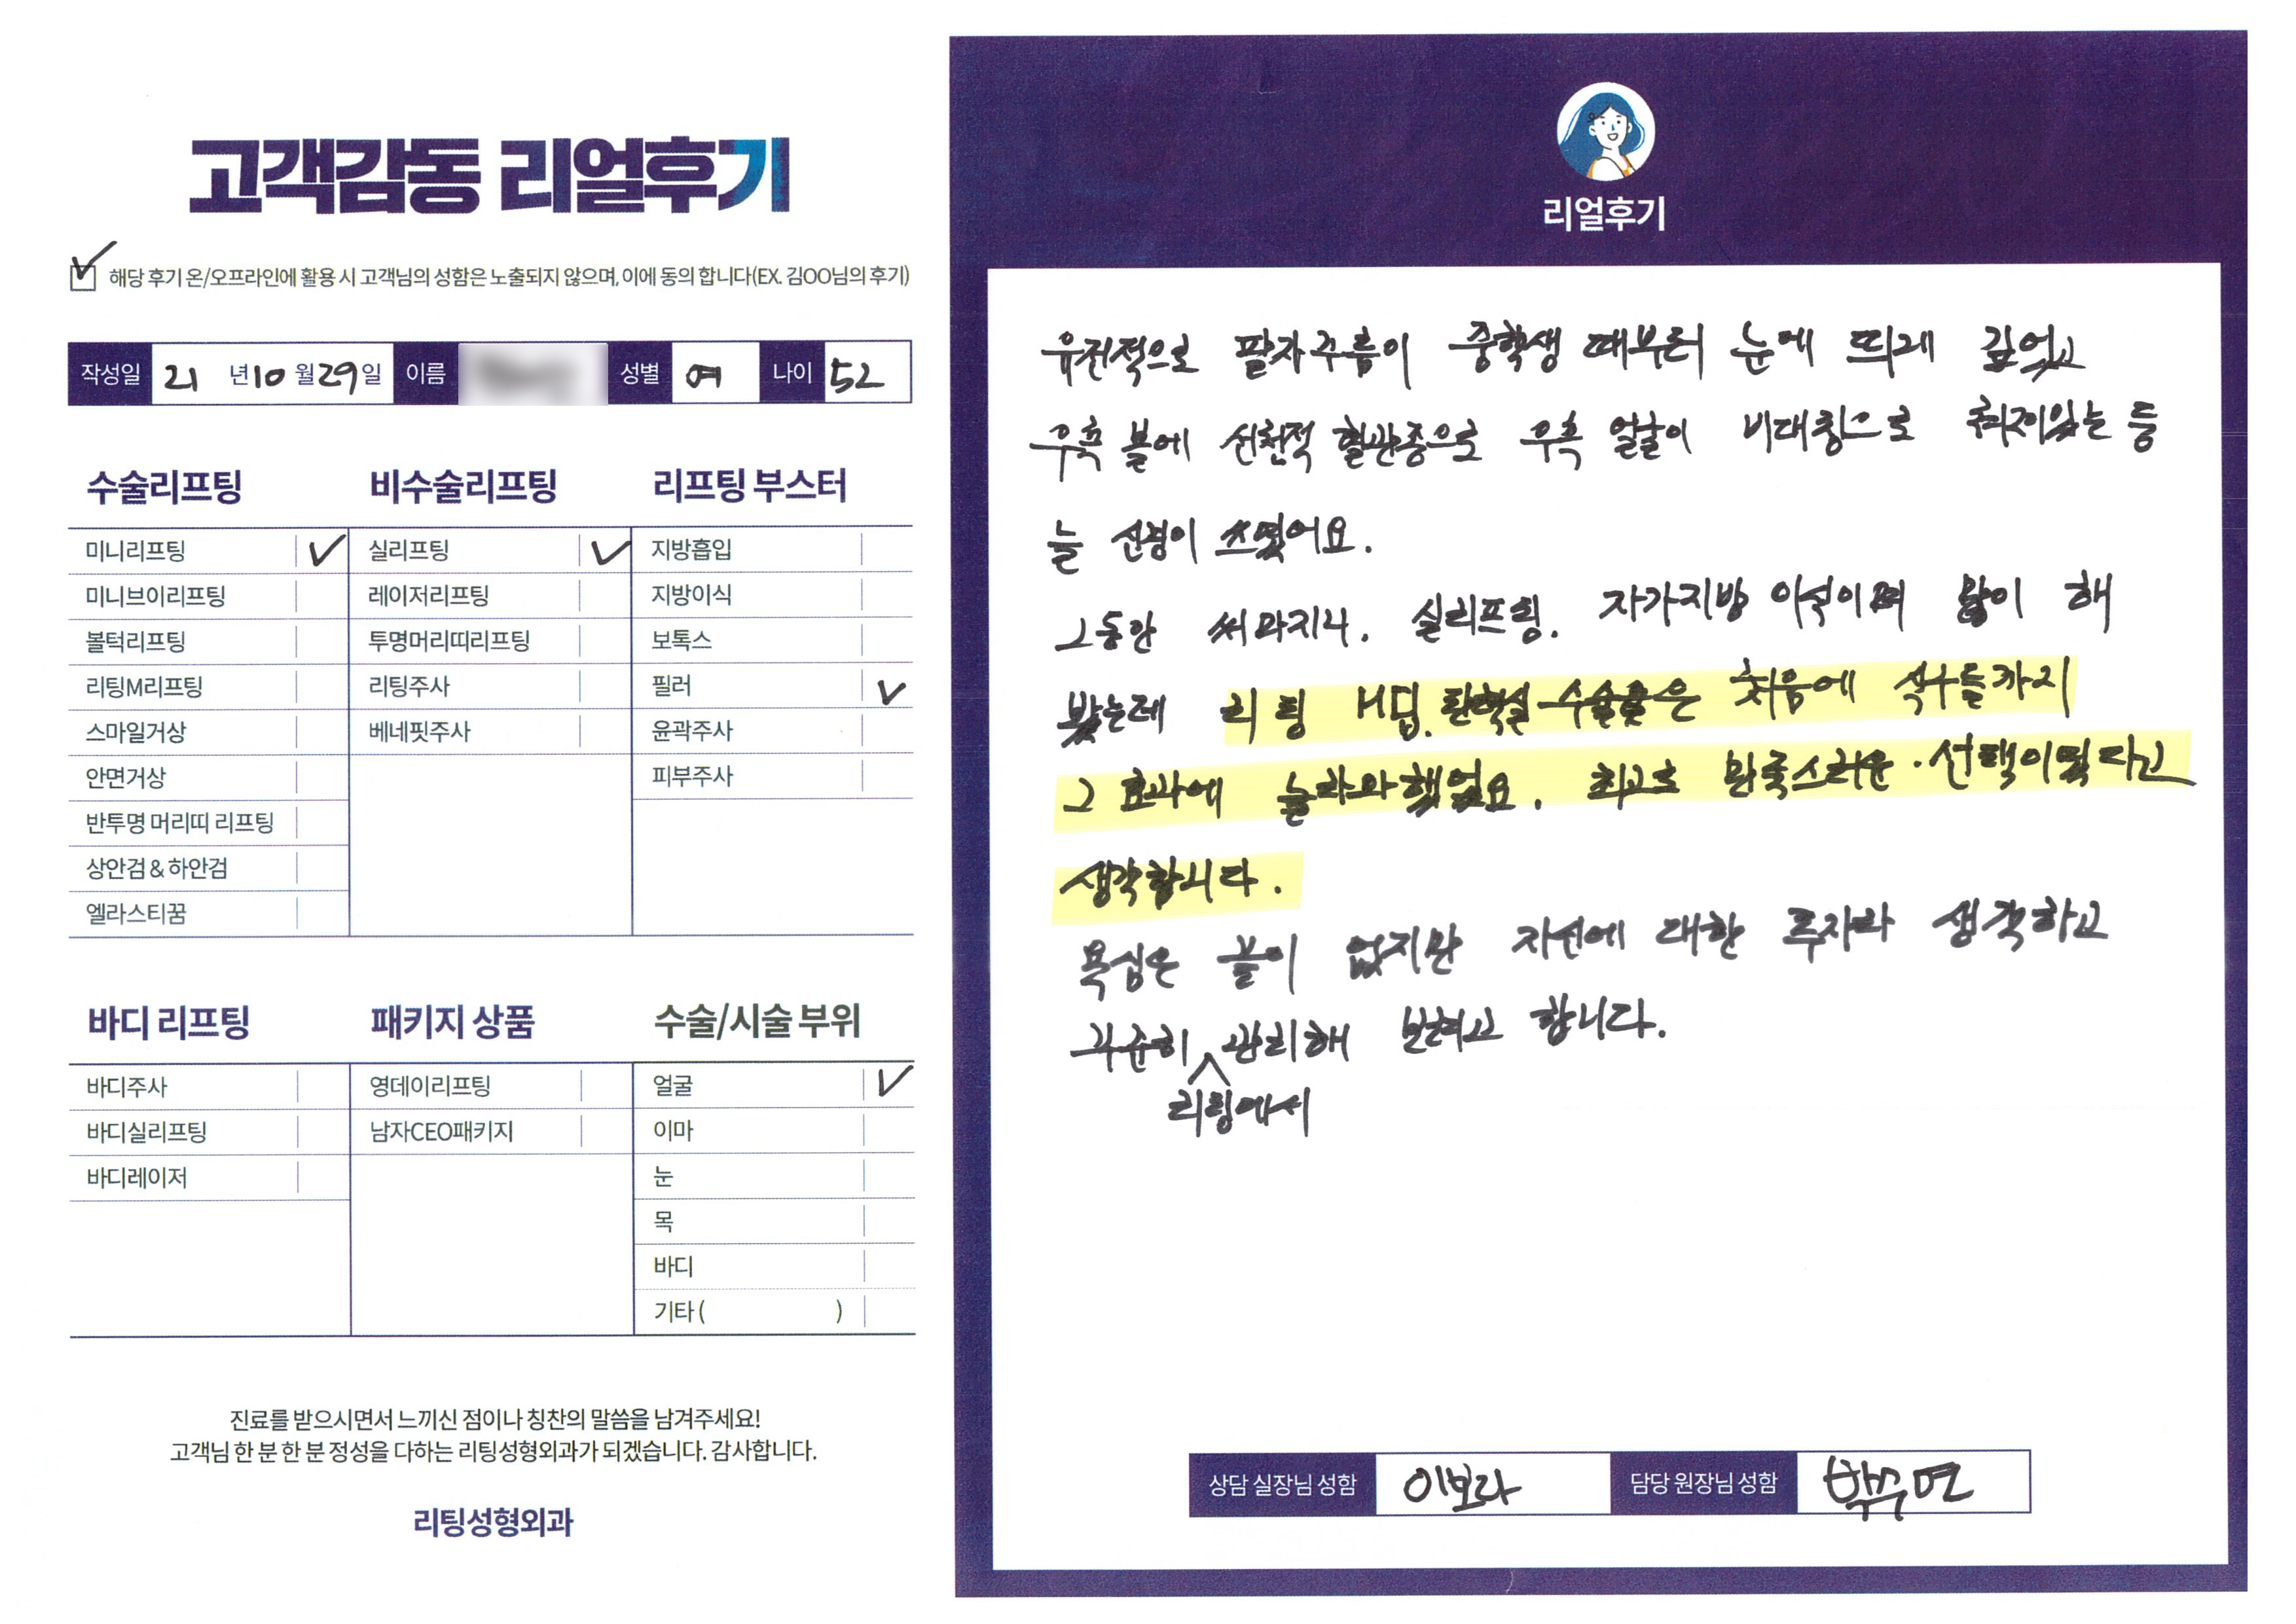 고객감동 리얼후기
해당 후기 온/오프라인에 활용 시 고객님의 성함은 노출되지 않으며, 이에 동의 합니다(EX. 김OO님의 후기)
작성일 21 년 10 월 29 일 이름 성별 여 나이 52
수술리프팅 비수술리프팅 리프팅 부스터
미니리프팅 실리프팅 지방흡입
미니브이리프팅 레이저리프팅 지방이식
볼턱리프팅 투명머리띠리프팅 보톡스
리팅M리프팅 리팅주사 필러
스마일거상 베네핏주사 윤곽주사
안면거상 피부주사
반투명 머리띠 리프팅
상안검 & 하안검
엘라스티꿈
바디 리프팅 패키지 상품 수술/시술 부위
바디주사 영데이리프팅 얼굴
바디실리프팅 남자CEO패키지 이마
바디레이저 눈
목
바디
기타 ( )
진료를 받으시면서 느끼신 점이나 칭찬의 말씀을 남겨주세요!
고객님 한 분 한 분 정성을 다하는 리팅성형외과가 되겠습니다. 감사합니다.
리팅성형외과
리얼후기
유전적으로 팔자주름이 중학생 때부터 눈에 띄게 깊었고
우측 볼에 선천적 혈관종으로 우측 얼굴이 비대칭으로 쳐져있는 등
늘 신경이 쓰였어요.
그동안 써마지나. 실리프팅. 자가지방 이식이며 많이 해
봤는데 리팅 H딥. 탄력실 수술은 처음에 식구들까지
그 효과에 놀라와 했었요. 최고로 만족스러운 선택이였다고
생각합니다.
욕심은 끝이 없지만 자신에 대한 투자라 생각하고
꾸준히 관리해 보려고 합니다.
리팅에서
상담 실장님 성함 이보라 담당 원장님 성함